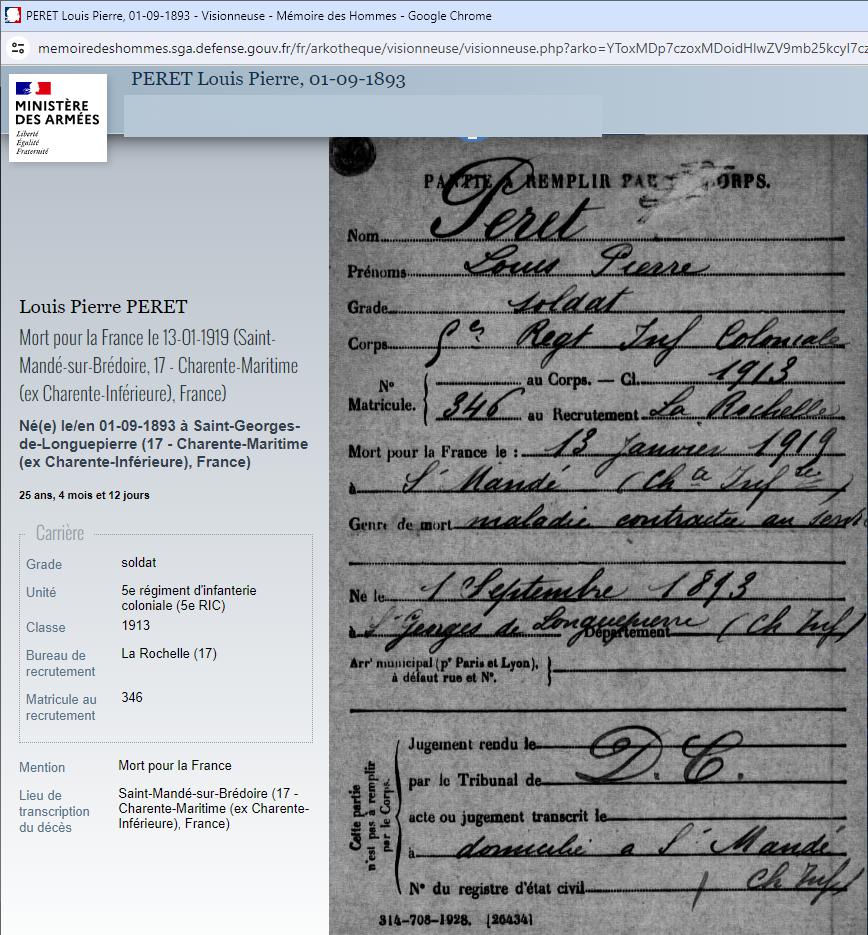 PERET Louis Pierre, 01-09-1893 - Visionneuse - Mémoire des Hommes - Google Chrome
memoiredeshommes.sga.defense.gouv.fr/fr/arkotheque/visionneuse/visionneuse.php?arko=YToxMDp7czoxMDoidHlwZV9mb25kcyI7cz
PERET Louis Pierre, 01-09-1893
MINISTÈRE
DES ARMÉES
Liberté
Égalité
Fraternité
Louis Pierre PERET
Mort pour la France le 13-01-1919 (Saint-
Mandé-sur-Brédoire, 17 - Charente-Maritime
(ex Charente-Inférieure), France)
Né(e) le/en 01-09-1893 à Saint-Georges-
de-Longuepierre (17 - Charente-Maritime
(ex Charente-Inférieure), France)
25 ans, 4 mois et 12 jours
Carrière
Grade soldat
Unité 5e régiment d'infanterie
coloniale (5e RIC)
Classe 1913
Bureau de La Rochelle (17)
recrutement
Matricule au 346
recrutement
Mention Mort pour la France
Lieu de Saint-Mandé-sur-Brédoire (17 -
transcription Charente-Maritime (ex Charente-
du décès Inférieure), France)
PARTIE A REMPLIR PAR CORPS.
Nom Peret
Prénoms Louis Pierre
Grade soldat
Corps 5e Regt Inf Coloniale
N° au Corps. — Cl. 1913
Matricule. 346 au Recrutement La Rochelle
Mort pour la France le : 13 janvier 1919
à St Mandé (Ch te Infre)
Genre de mort maladie contractée au
Né le 1 Septembre 1893
à St Georges de Longuepierre Département (Ch Inf)
Arrt municipal (pr Paris et Lyon),
à défaut rue et N°.
Cette partie
n'est pas à remplir
par le Corps.
Jugement rendu le D. C.
par le Tribunal de
acte ou jugement transcrit le
à domicilié a St Mandé
N° du registre d'état civil Ch Inf)
314-708-1928. [26434]